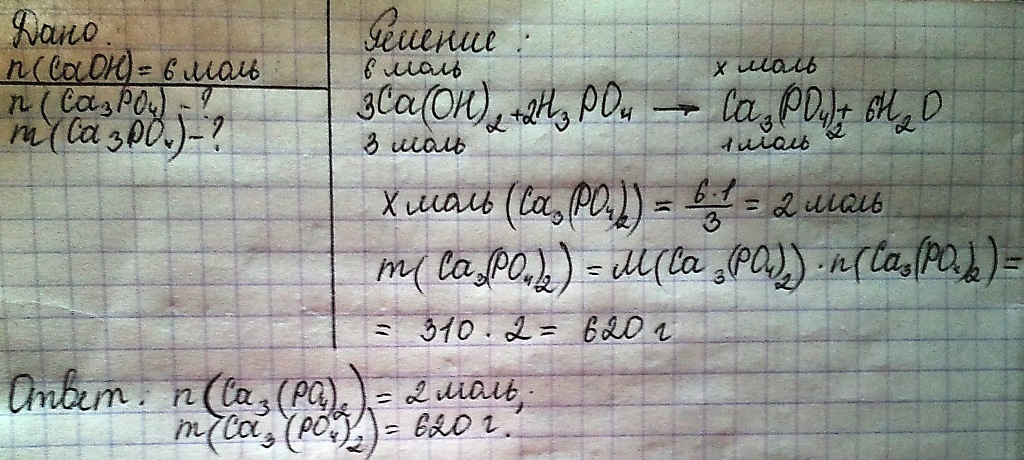 Дано:
n(CaOH) = 6 моль
n(Ca₃PO₄) - ?
m(Ca₃PO₄) - ?
Решение:
6 моль x моль
3Ca(OH)₂ + 2H₃PO₄ → Ca₃(PO₄)₂ + 6H₂O
3 моль 1 моль
x моль (Ca₃(PO₄)₂) = 6·1/3 = 2 моль
m(Ca₃(PO₄)₂) = M(Ca₃(PO₄)₂) · n(Ca₃(PO₄)₂) =
= 310 · 2 = 620 г
Ответ: n(Ca₃(PO₄)₂) = 2 моль;
m(Ca₃(PO₄)₂) = 620 г.